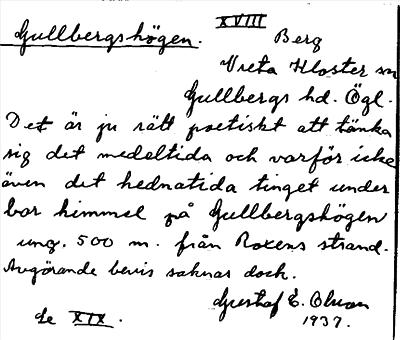 XVIII
Gullbergshögen. Berg
Vreta Kloster sn
Gullbergs hd. Ögl.
Det är ju rätt poetiskt att tänka
sig det medeltida och varför icke
även det hednatida tinget under
bar himmel på Gullbergshögen
ung. 500 m. från Roxens strand.
Avgörande bevis saknas dock.
Gustaf E. Olson
1937.
Se XIX.